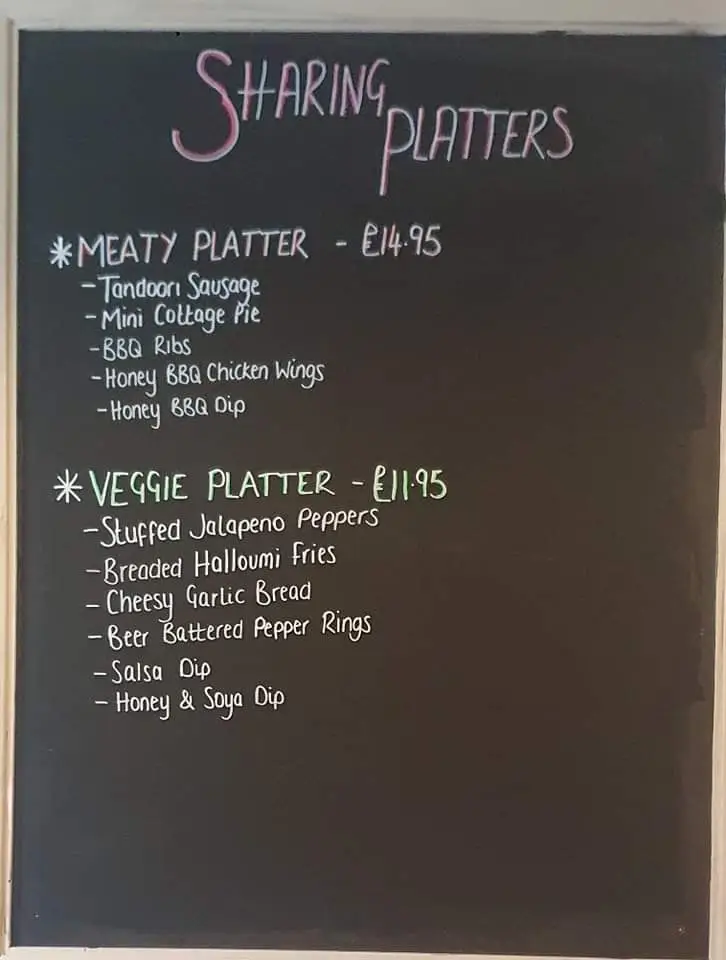 SHARING
PLATTERS
*MEATY PLATTER - £14.95
-Tandoori Sausage
-Mini Cottage Pie
-BBQ Ribs
-Honey BBQ Chicken Wings
-Honey BBQ Dip
*VEGGIE PLATTER - £11.95
-Stuffed Jalapeno Peppers
-Breaded Halloumi Fries
- Cheesy Garlic Bread
- Beer Battered Pepper Rings
- Salsa Dip
- Honey & Soya Dip